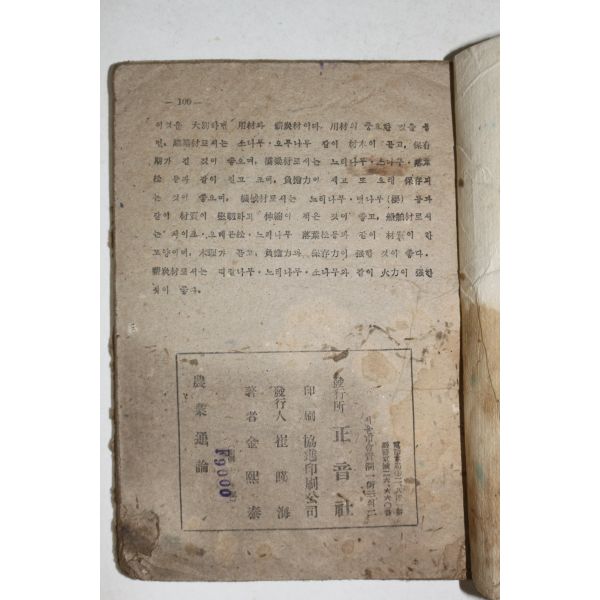 — 100 —
이것을 大別하면 用材와 薪炭材이다. 用材의 중요한 것을 들
면, 建築材로서는 소나무·오루나무 같이 材木이 곧고, 保存
期가 길 것이 좋으며, 橋梁材로서는 느티나무·소나무·落葉
松 등과 같이 길고 크며, 負擔力이 세고 또 오래 保存되
는 것이 좋으며, 器械材로서는 느티나무·벗나무(櫻) 등과
같이 材質이 堅硬하고 伸縮이 적은 것이 좋고, 船舶材로서
는 落葉松등과 같이 材質이 한
모양이며, 木理가 곧고, 負擔力과 保存力이 强할 것이 좋다.
薪炭材로서는 나무·느티나무·소나무와 같이 火力이 强한
것이 좋다.
電話
市會賢洞一街
發行所 正音社
印刷 協進印刷公司
發行人 崔暎海
著者 金熙泰
農業通論
₩9000